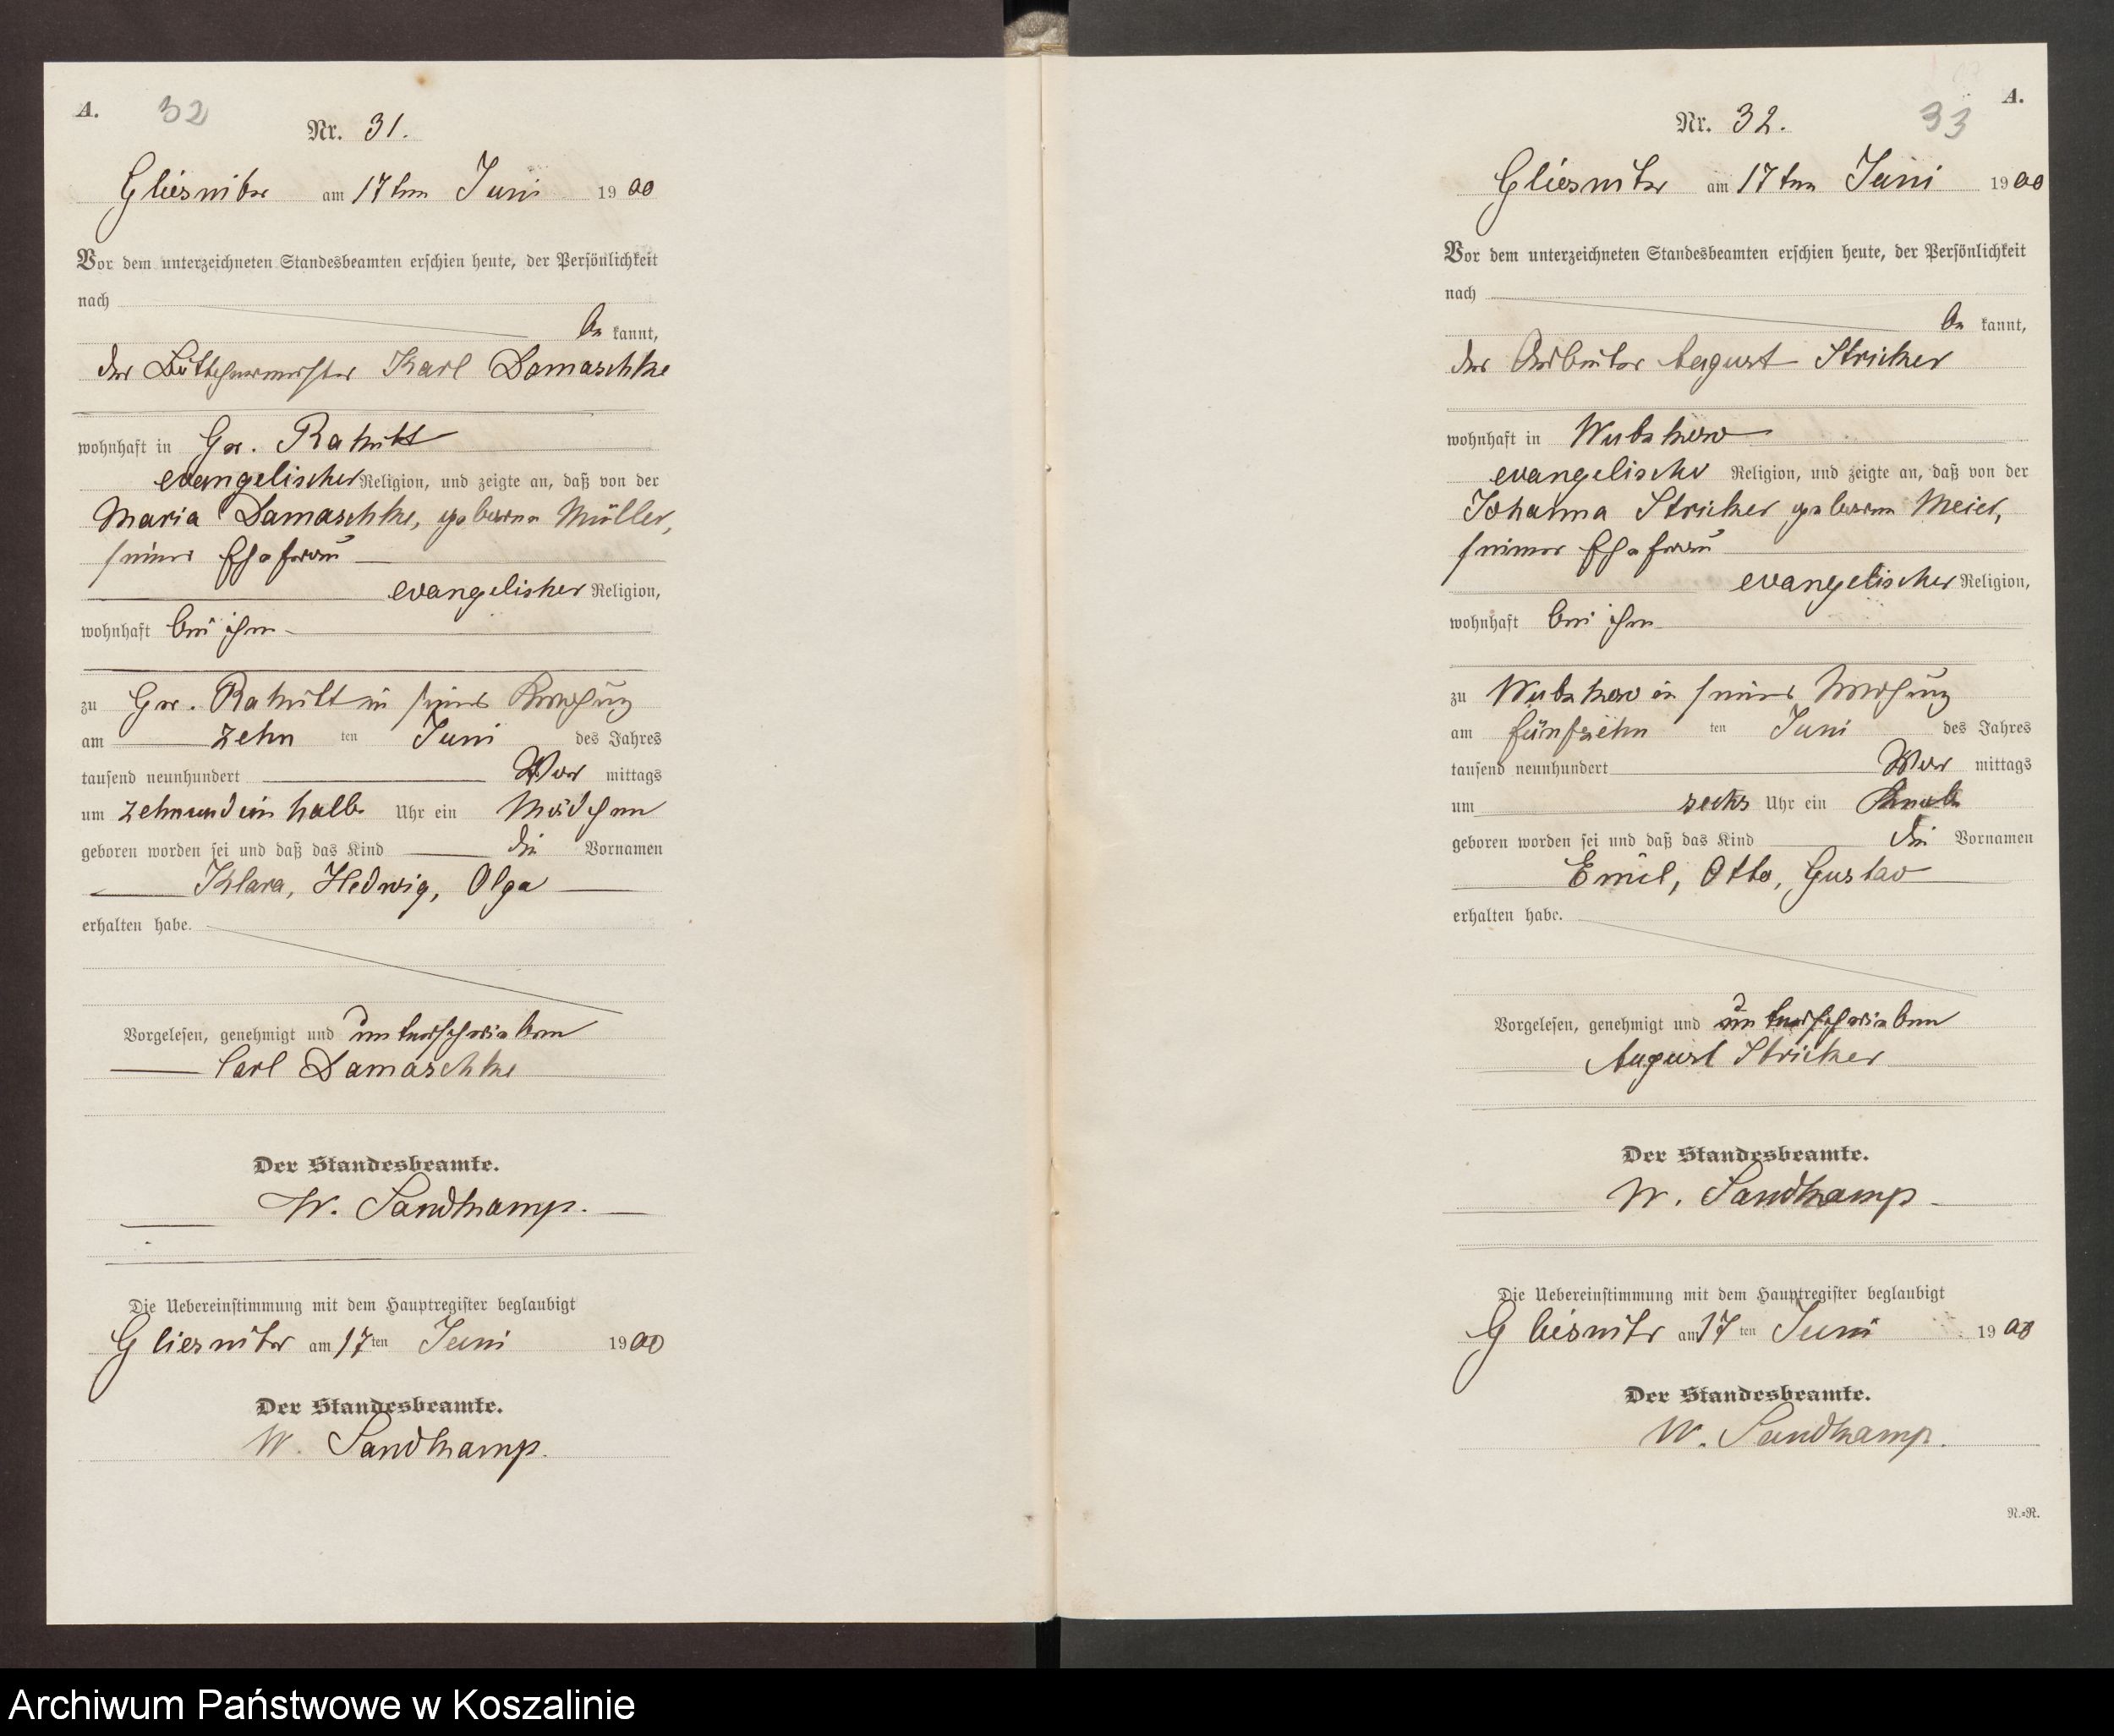 A. 32
Nr. 31.
Gliesnitz am 17ten Juni 1900
Vor dem unterzeichneten Standesbeamten erschien heute, der Persönlichkeit
nach
be kannt,
der Büttchermeister Karl Damaschke
wohnhaft in Gr. Rakitt
evangelischer Religion, und zeigte an, daß von der
Maria Damaschke, geborene Müller,
seiner Ehefrau
evangelischer Religion,
wohnhaft bei ihm
zu Gr. Rakitt in seiner Wohnung
am zehn ten Juni des Jahres
tausend neunhundert Vor mittags
um zehnundein halb Uhr ein Mädchen
geboren worden sei und daß das Kind die Vornamen
Klara, Hedwig, Olga
erhalten habe.
Vorgelesen, genehmigt und unterschrieben
Carl Damaschke
Der Standesbeamte.
W. Sandkamp.
Die Uebereinstimmung mit dem Hauptregister beglaubigt
Gliesnitz am 17ten Juni 1900
Der Standesbeamte.
W. Sandkamp.
A.
Nr. 32. 33
Gliesnitz am 17ten Juni 1900
Vor dem unterzeichneten Standesbeamten erschien heute, der Persönlichkeit
nach
be kannt,
der Arbeiter August Stricker
wohnhaft in Wutzkow
evangelischer Religion, und zeigte an, daß von der
Johanna Stricker geborene Meier,
seiner Ehefrau
evangelischer Religion,
wohnhaft bei ihm
zu Wutzkow in seiner Wohnung
am fünfzehn ten Juni des Jahres
tausend neunhundert Vor mittags
um sechs Uhr ein Knabe
geboren worden sei und daß das Kind die Vornamen
Emil, Otto, Gustav
erhalten habe.
Vorgelesen, genehmigt und unterschrieben
August Stricker
Der Standesbeamte.
W. Sandkamp
Die Uebereinstimmung mit dem Hauptregister beglaubigt
Gliesnitz am 17ten Juni 1900
Der Standesbeamte.
W. Sandkamp.
N.=R.
Archiwum Państwowe w Koszalinie